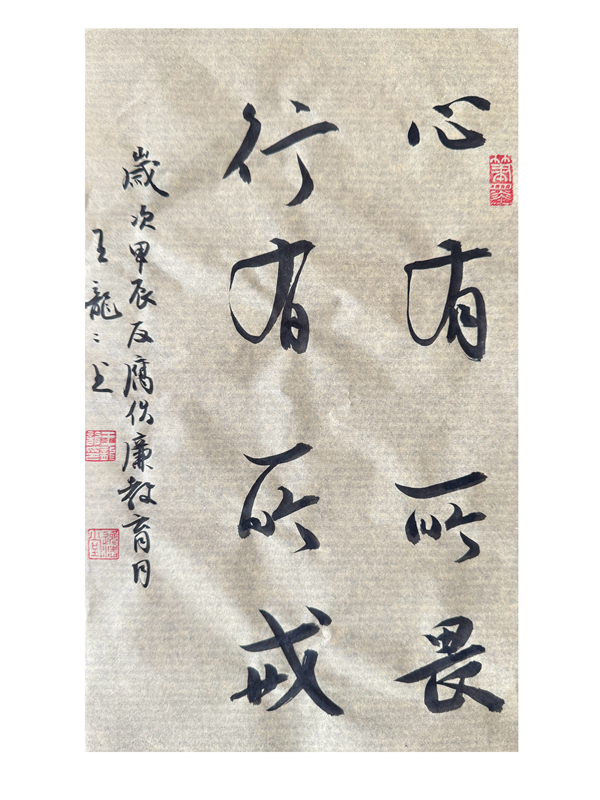 心有所畏
行有所戒
歲次甲辰反腐倡廉教育月
王龍龍书